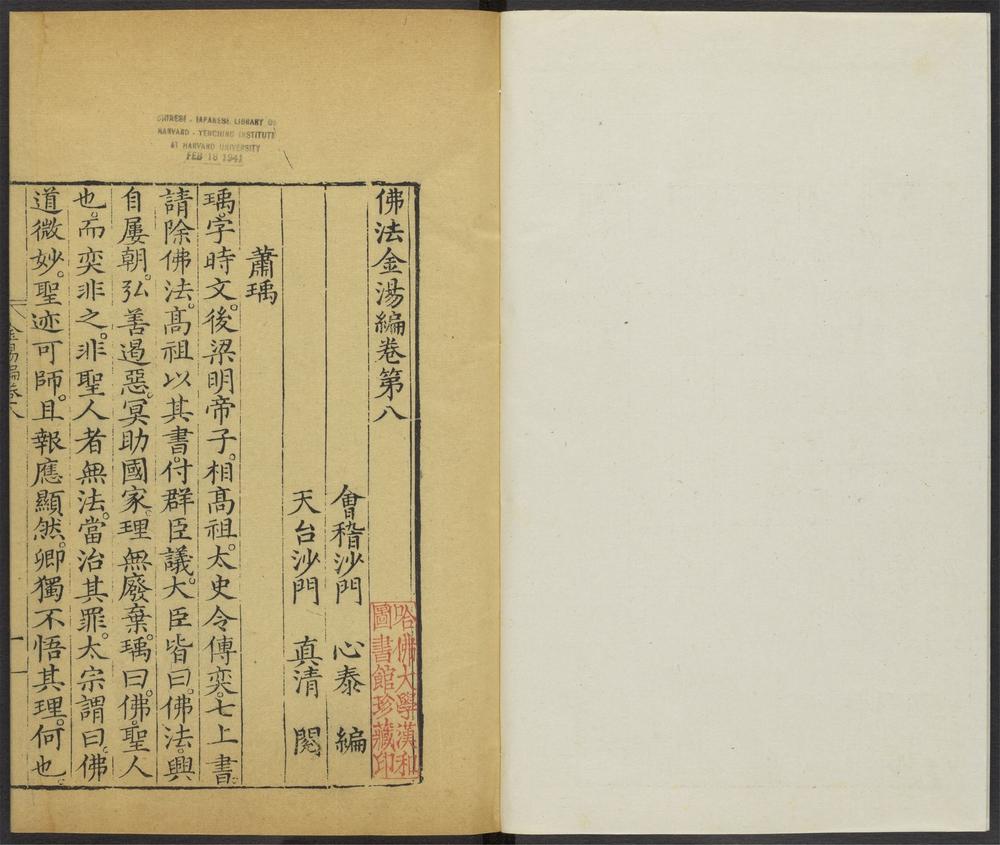 佛法金湯編卷第八
會稽沙門 心泰 編
天台沙門 真清 閱
蕭瑀
瑀。字時文。後梁明帝子。相髙祖。太史令傅奕。七上書。
請除佛法。髙祖以其書。付群臣議。大臣皆曰。佛法。興
自屢朝。弘善遏惡。冥助國家。理無廢棄。瑀曰。佛。聖人
也。而奕非之。非聖人者無法。當治其罪。太宗謂曰。佛
道微妙。聖迹可師。且報應顯然。卿獨不悟其理。何也。
金湯編卷八
一
哈佛大學漢和
圖書館珍藏印
CHINESE - JAPANESE LIBRARY OF
HARVARD - YENCHING INSTITUTE
AT HARVARD UNIVERSITY
FEB 18 1941